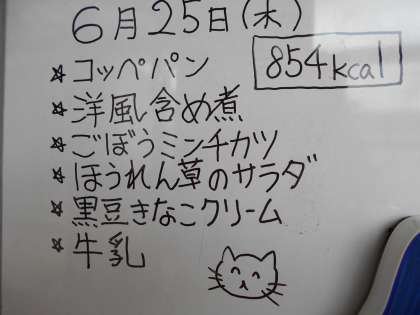 6月25日(木)
854kcal
☆コッペパン
☆洋風含め煮
☆ごぼうミンチカツ
☆ほうれん草のサラダ
☆黒豆きなこクリーム
☆牛乳